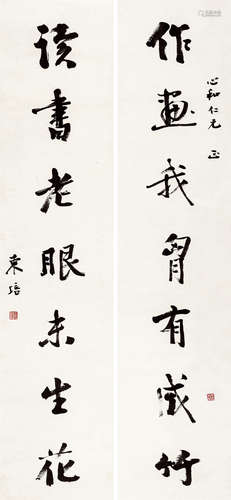 作畫我胸有成竹
心和仁兄 正
读書老眼未生花
東培